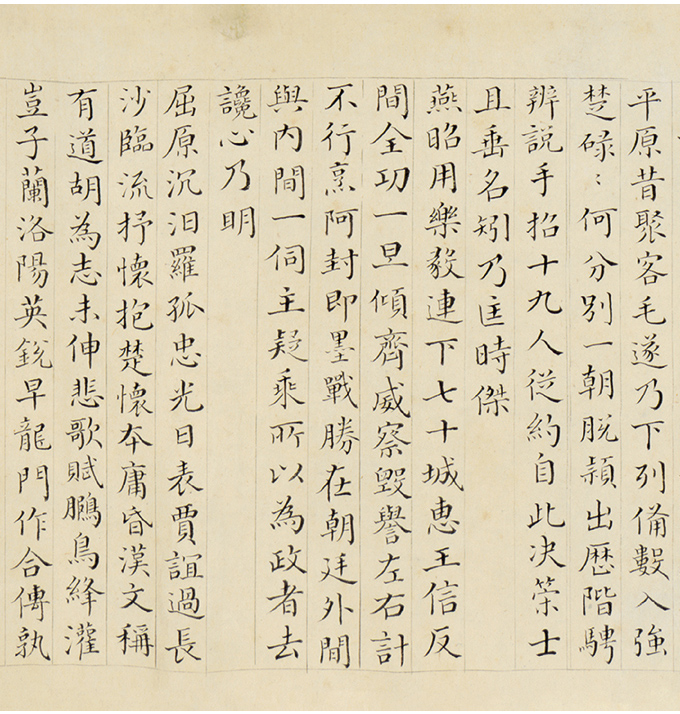 平原昔聚客毛遂乃下列備數入強
楚碌〻何分別一朝脫穎出歷階騁
辨說手招十九人従約自此决策士
且垂名矧乃匡時傑
燕昭用樂毅連下七十城恵王信反
間全功一旦傾齊威察毀譽左右計
不行烹阿封即墨戰勝在朝廷外間
與內間一伺主疑乘所以為政者去
讒心乃明
屈原沉汨羅孤忠光日表賈誼過長
沙臨流抒懷抱楚懷夲庸昏漢文稱
有道胡為志未伸悲歌賦鵩鳥絳灌
豈子蘭洛陽英銳早龍門作合傳孰